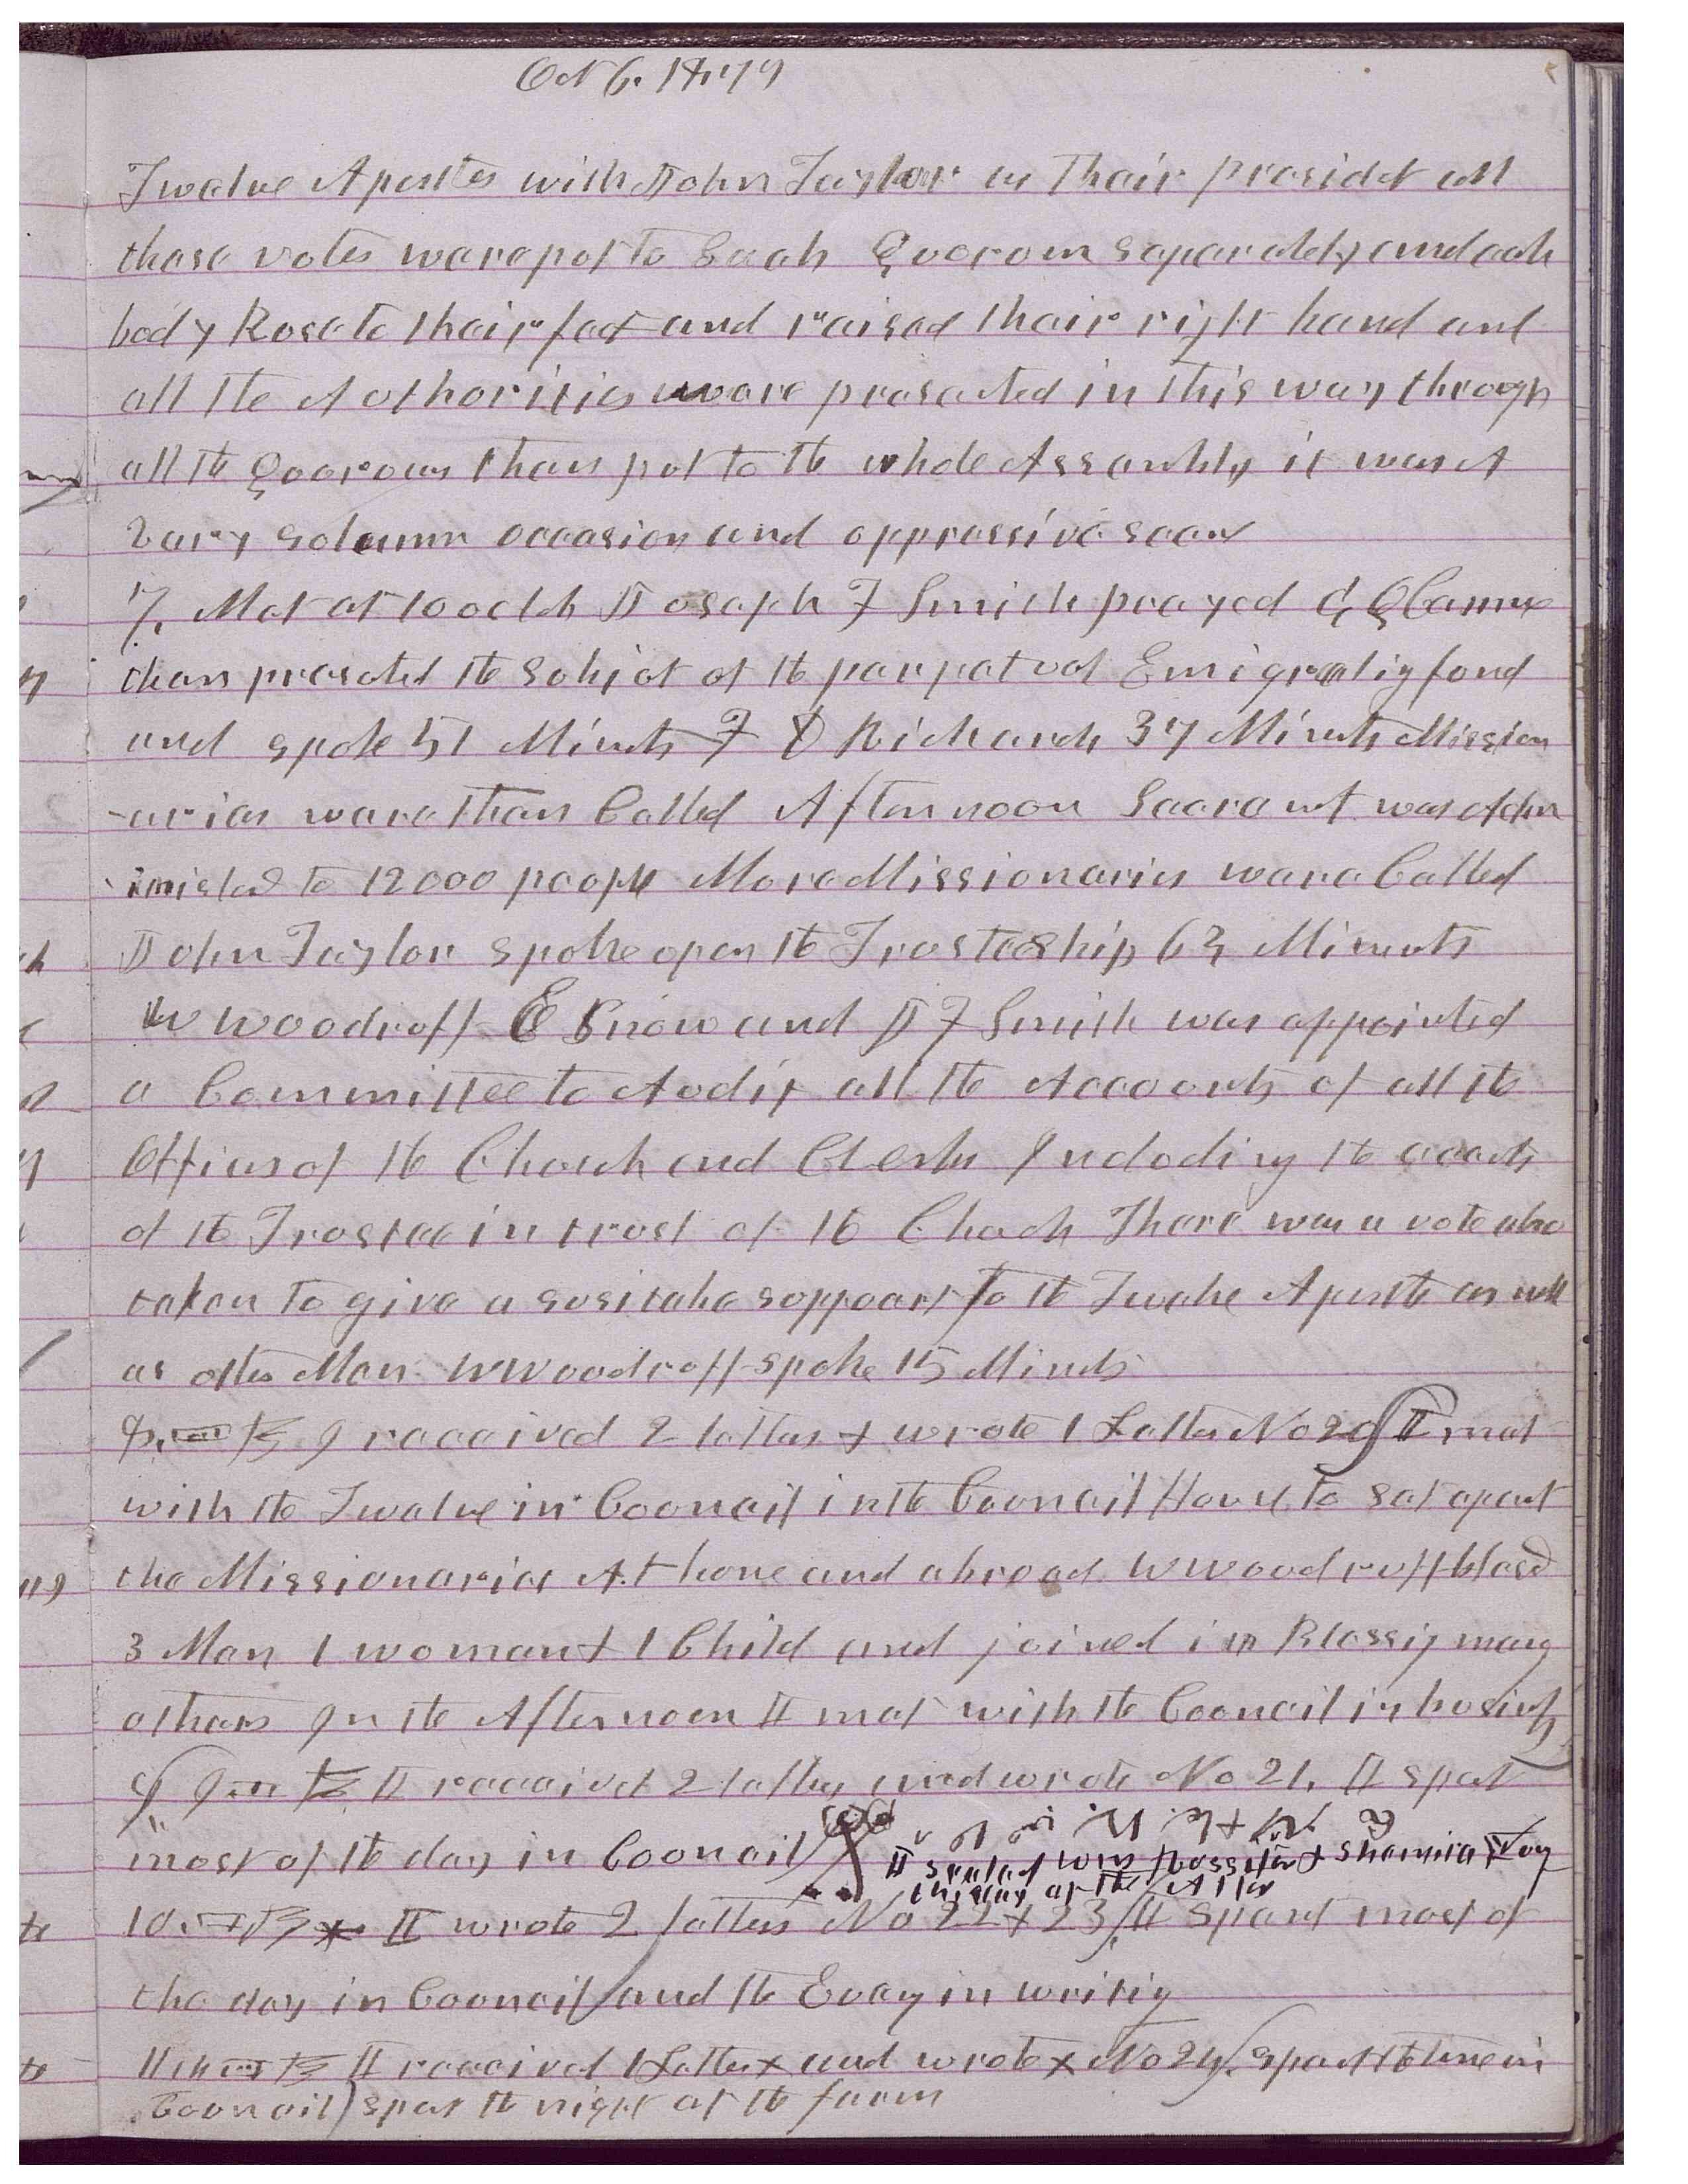 Oct 6. 1877
Twelve Apostles with John Taylor as Their presidet all
these votes were put to Each Quorum separately and each
body Rose to their feet and raised their right hand and
all the Authorities were preseted in this way through
all the Quorums then put to the whole Assembly it was A
very solemn occasion and oppressive scene
7. Met at 10 oclok Joseph F Smith prayed G Q Cannon
then preseted the subject of the perpetual Emigratig fund
and spoke 51 Minuts F D Richards 37 Minuts Mission
-aries were then Called Afternoon Sacrament was Adm
inisted to 12000 people More Missionaries were Called
John Taylor spoke upon the Trusteeship 63 Minuts
W Woodruff E Snow and J F Smith was appointed
a Committee to Audit all the Accounts of all the
Offices of the Church and Clerks Including the accouts
of the Trustee in trust of the Church There was a vote also
taken to give a suitable support to the Twelve Apostles as well
as other Men W Woodruff spoke 15 Minuts
8. I received 2 letters & wrote 1 Letter No 20 I met
with the Twelve in Council in the Council House to set apart
the Missionaries At home and abroad W Woodruff blesed
3 Men 1 woman & 1 Child and joined in Blessig many
others In the Afternoon I met with the Council in busines
9 I receivd 2 letters and wrote No 21. I spent
most of the day in Council
I sealed Wm Rossiter & Shamira Young
this day at the Alter
10. I wrote 2 letters No 22 & 23 I spent most of
the day in Council and the Eveng in writig
11 I received 1 Letter and wrote No 24. spent the time in
Council spent the night at the farm